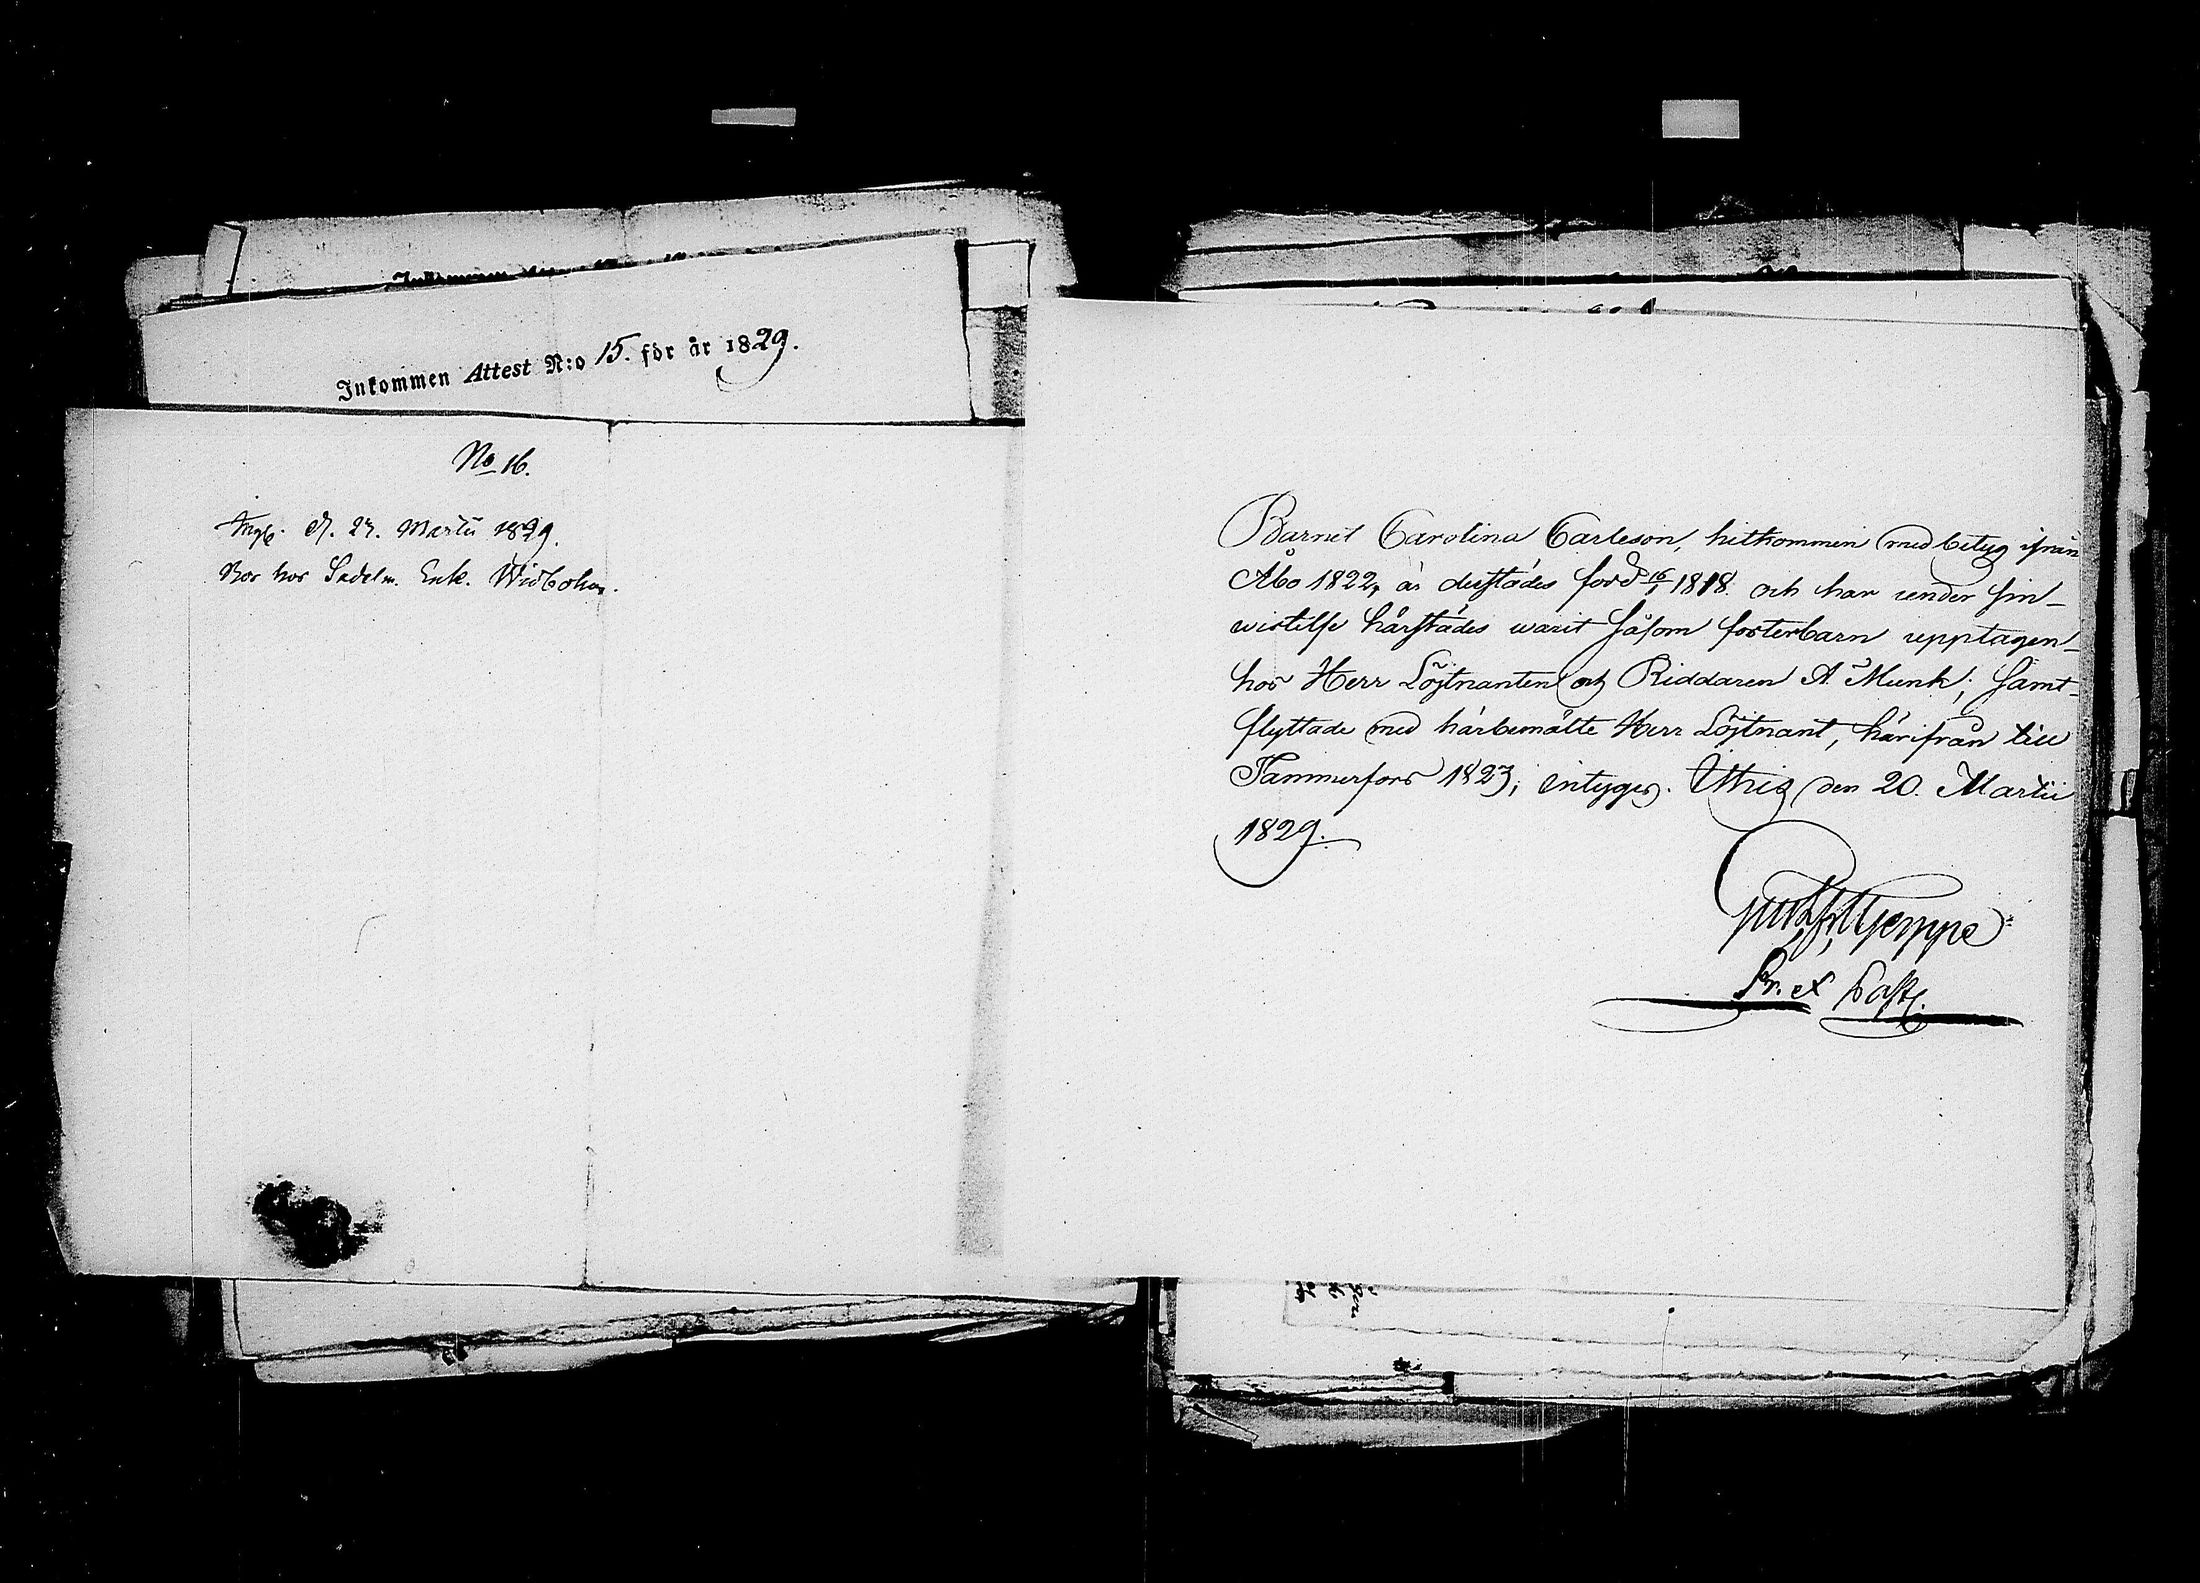 Inkommen Attest N:o 15. för år 1829.
No 16.
d. 27. Martii 1829.
Bor hos Sadelm. Enk. Widbohm.
Barnet Carolina Carleson, hitkommen med betyg ifrån
Åbo 1822, är derstädes född 16/1 1818. och har under sin
wistelse härstädes warit såsom fosterbarn upptagen
hos Herr Löjtnanten och Riddaren A. Munk; samt
flyttade med härbemälte Herr Löjtnant, härifrån till
Tammerfors 1823; intygar. Ithis den 20. Martii
1829.